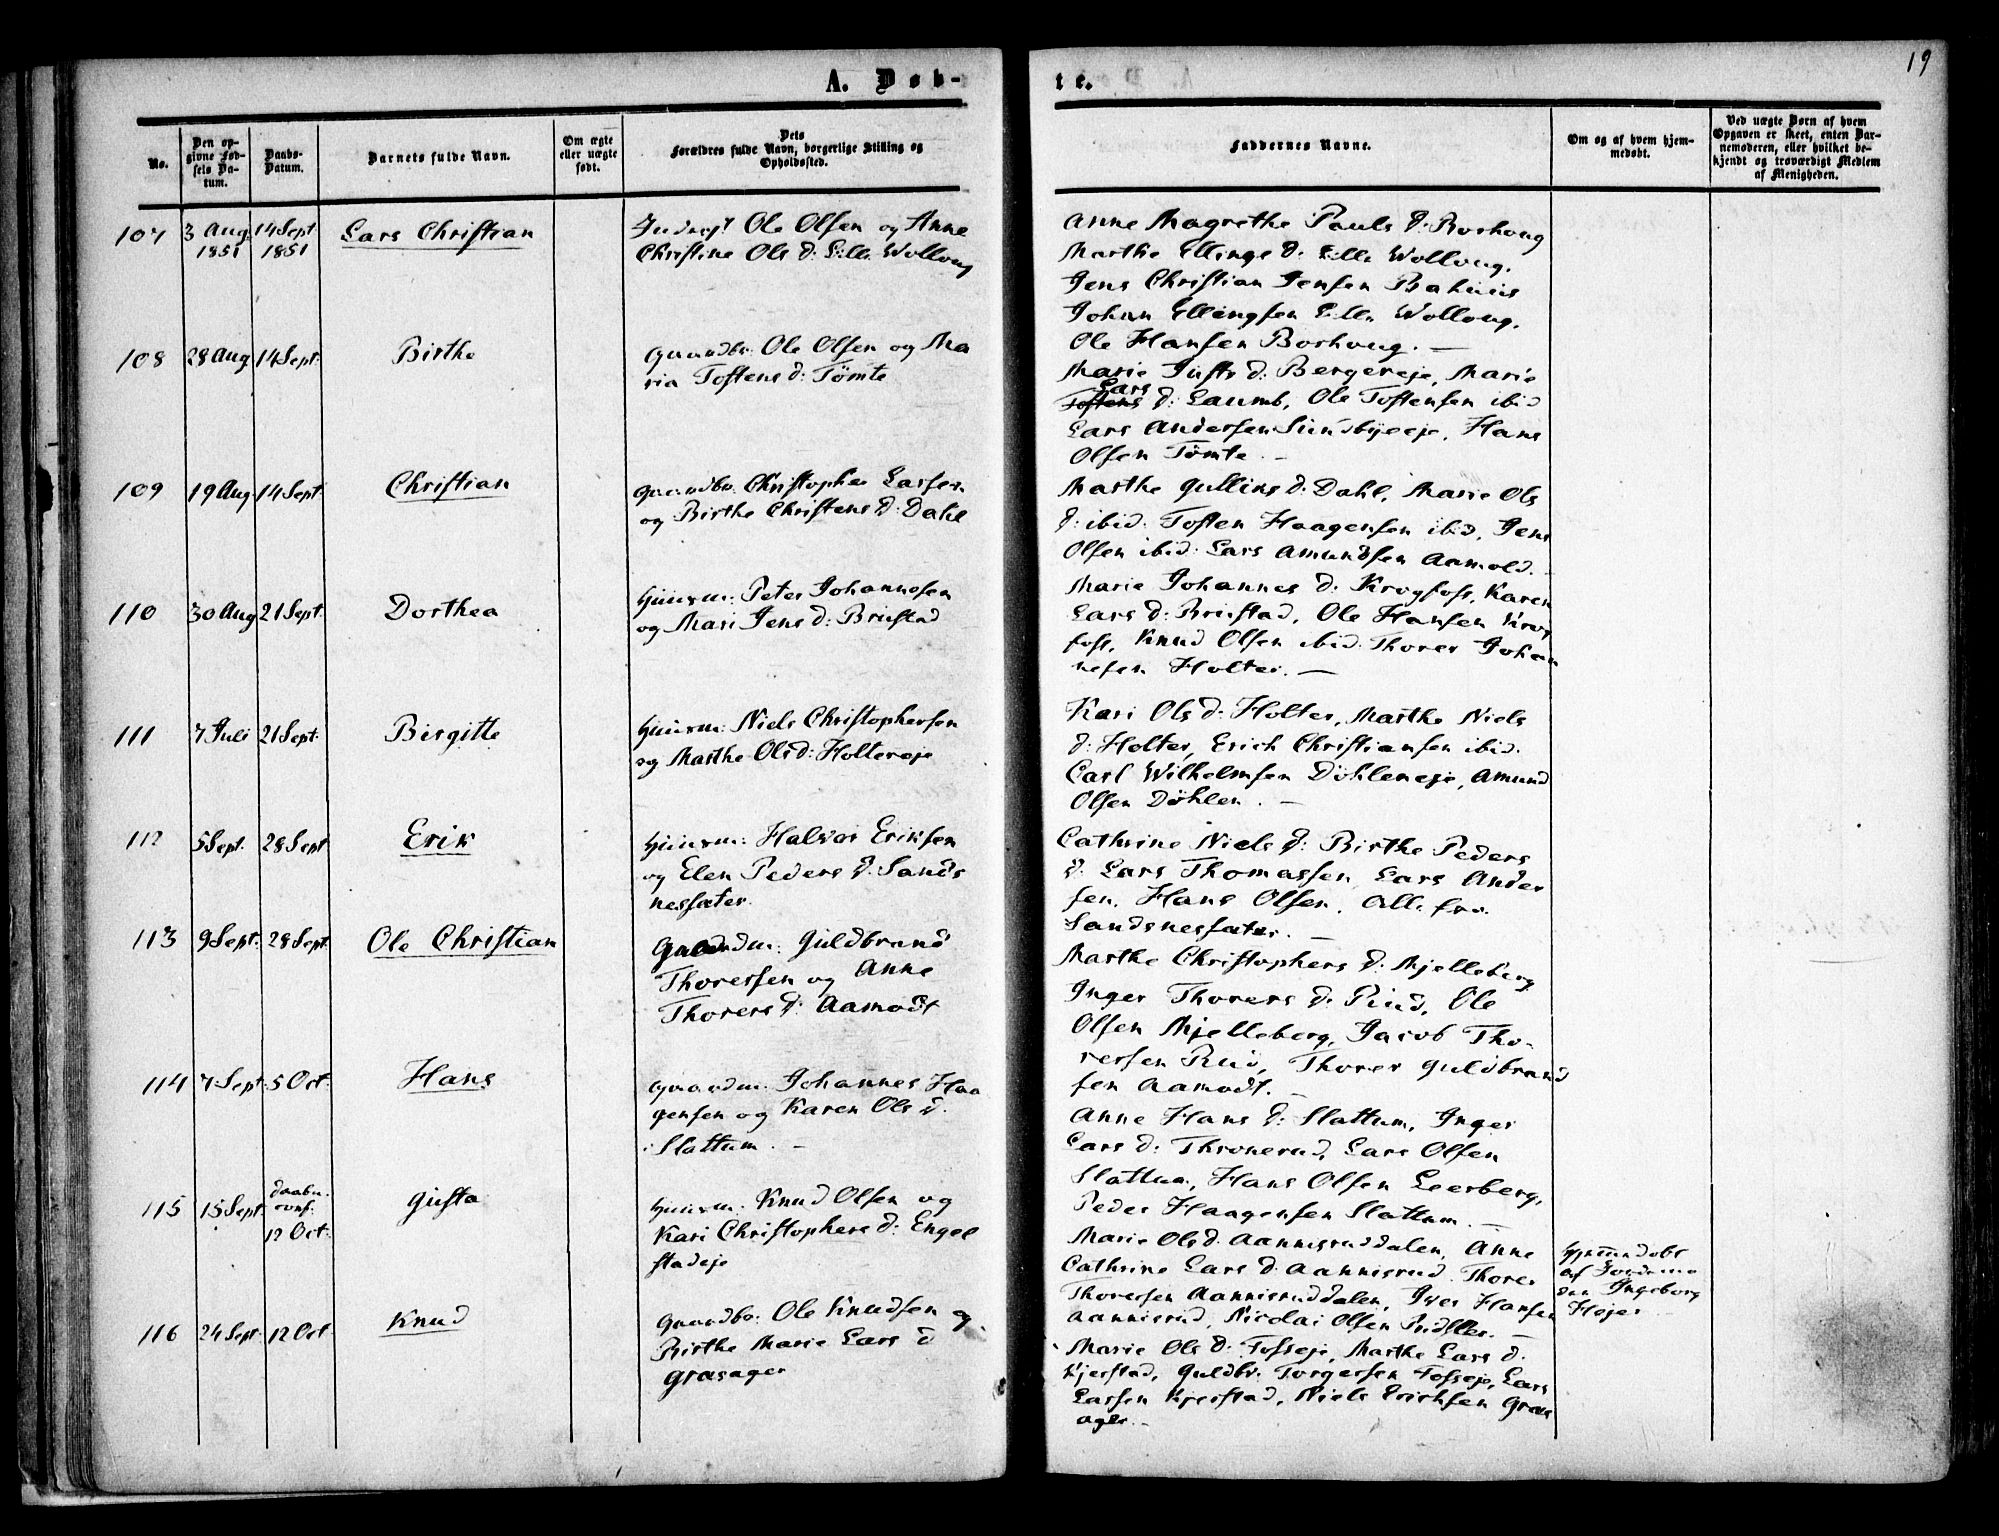 19
A. Døb-
te.
No.
Den op-
givne Fød-
sels Da-
tum.
Daabs-
Datum.
Barnets fulde Navn.
Om ægte
eller uægte
født.
Dets
Forældres fulde Navn, borgerlige Stilling og
Opholdssted.
Faddernes Navne.
Om og af hvem hjem-
medøbt.
Ved uægte Børn af hvem
Opgaven er skeet, enten Bar-
nemoderen, eller hvilket be-
kjendt og troværdigt Medlem
af Menigheden.
107 3 Aug 14 Sept Lars Christian Ole Olsen og Anne
1851 1851 Christine Ols d: Wolloug
Anne Magrethe Pauls d: Borhoug
Marthe Ellings d: Wolloug.
Jens Christian Jensen
Johan Ellingsen Wolloug.
Ole Hansen Borhoug. —
108 28 Aug 14 Sept: Birthe Gaardbr: Ole Olsen og Ma
ria Tostens d: Tømte
Marie d: Bergereje, Marie
Lars
Tostens d: Laumb, Ole Tostensen ibid
Lars Andersen Sundbyeeje, Hans
Olsen Tømte. —
109 19 Aug 14 Sept: Christian Gaardbr: Christopher Larsen
og Birthe Christens d: Dahl
Marthe Gullins d: Dahl, Marie Ols
d: ibid: Tosten Haagensen ibid, Jens
Olsen ibid: Lars Amundsen Aamold. —
110 30 Aug 21 Sept: Dorthea Huusm: Peter Johannesen
og Mari Jens d: Brustad
Marie Johannes d: Krogfoss, Karen
Lars d: Brustad, Ole Hansen Krog
foss, Knud Olsen ibid: Thorer Johan
nesen Holter. —
111 7 Juli 21 Sept: Birgitte Huusm: Niels Christophersen
og Marthe Ols d: Holtereje
Kari Ols d: Holter, Marthe Niels
d: Holter, Erich Christiansen ibid.
Carl Wilhelmsen Döhleneje, Amund
Olsen Döhlen. —
112 5 Sept. 28 Sept Erik Huusm: Halvor Eriksen
og Elen Peders d: Sands
nessæter.
Cathrine Niels d: Birthe Peders
d: Lars Thomassen, Lars Ander
sen, Hans Olsen, Alle fra
Sandsnessæter. —
113 9 Sept: 28 Sept: Ole Christian Guldbrand
Thoressen og Anne
Thorers d: Aamodt
Marthe Christophers d: Mjelleberg
Inger Thorers d: Ruud, Ole
Olsen Mjelleberg, Jacob Tho-
ressen Ruud, Thorer Guldbrand
sen Aamodt. —
114 7 Sept: 5 Oct: Hans Gaardm: Johannes Haa
gensen og Karen Ols d:
Slattum. —
Anne Hans d: Slattum, Inger
Lars d: Thronerud, Lars Olsen
Slattum, Hans Olsen Leerberg,
Peder Haagensen Slattum. —
115 15 Sept daabs. Gusta Huusm: Knud Olsen og
conf:
12 Oct: Kari Christophers d: Engel
stadeje
Marie Ols d. Aannisruddalen, Anne
Cathrine Lars d: Aannisrud. Thorer
Thoresen Aannisruddalen, Iver Hansen
Aannisrud, Nicolai Olsen —
Hjemmedøbt
af Jordemo
der Ingeborg
116 24 Sept: 12 Oct Knud Gaardbr: Ole Knudsen og
Birthe Marie Lars d
Grasager
Marie Ols d: Fosseje, Marthe Lars d:
Kjerstad, Guldbr: Torgersen Fosseje, Lars
Larsen Kjerstad, Niels Erichsen Gras
ager. —